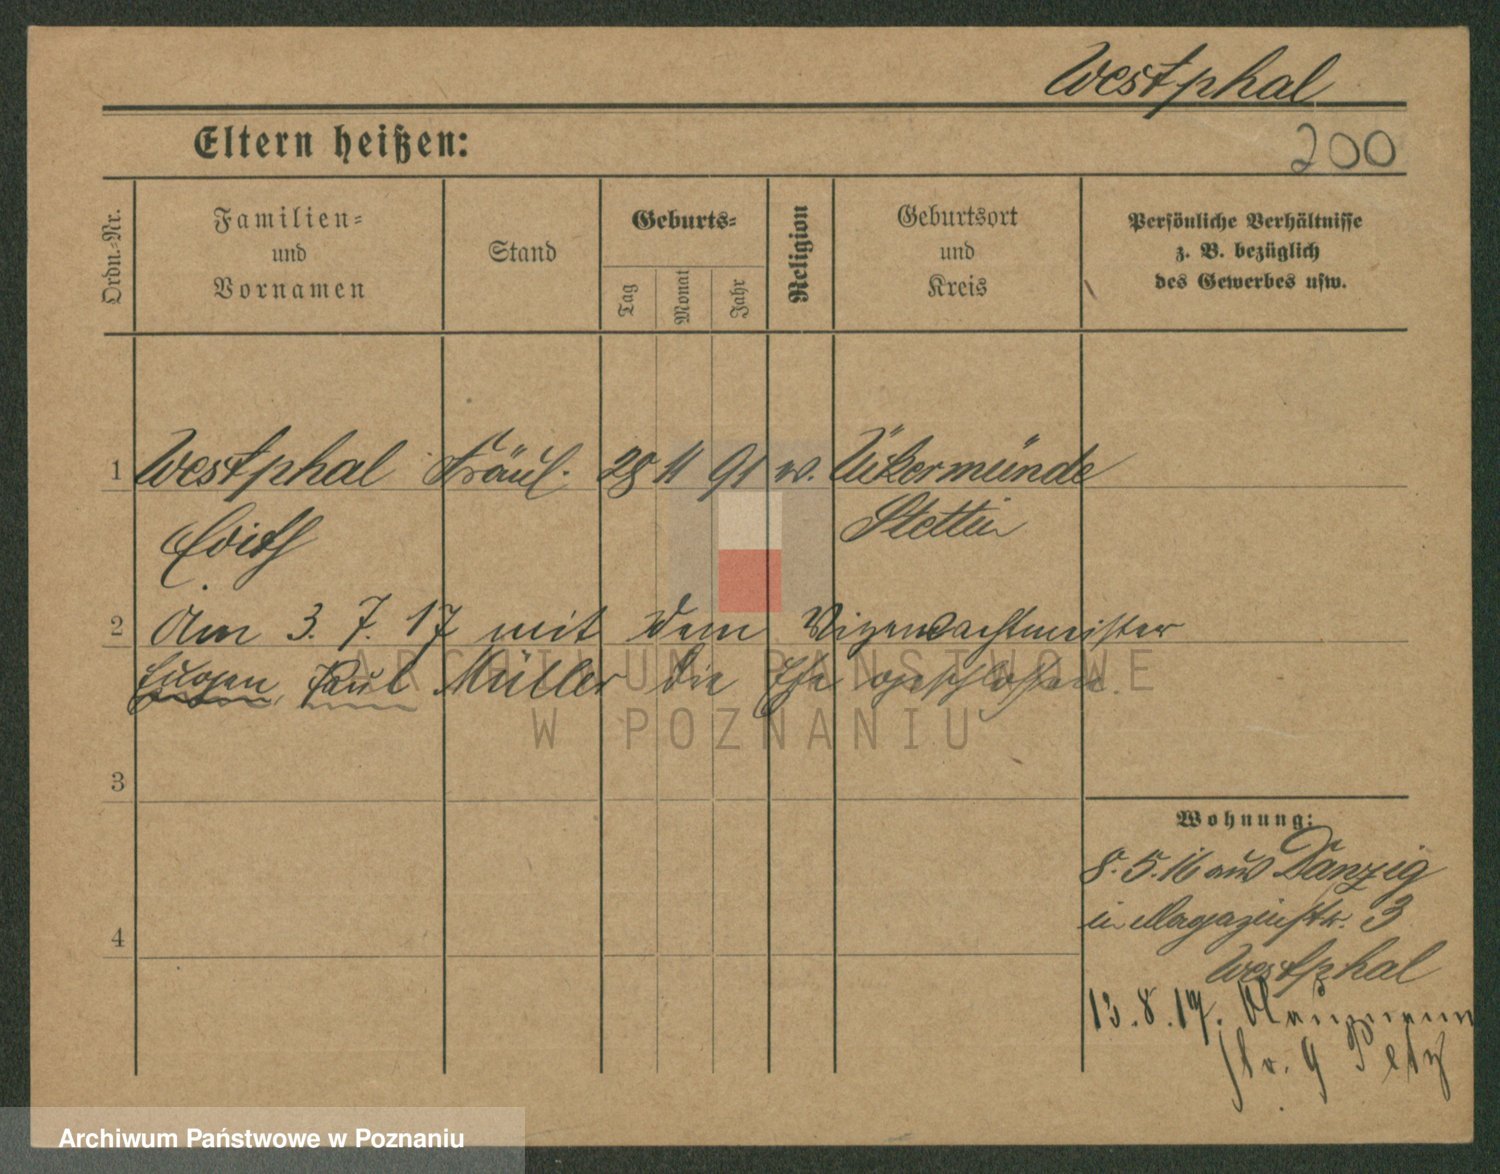 Westphal
Eltern heißen:
200
Ordn.-Nr.
Familien-
und
Vornamen
Stand
Geburts-
Tag
Monat
Jahr
Religion
Geburtsort
und
Kreis
Persönliche Verhältnisse
z. B. bezüglich
des Gewerbes usw.
1 Westphal Fräul. 28 11 91 w. Ükermünde
Edith Stettin
2 Am 3. 7. 17 mit dem Vizewachtmeister
Eugen Paul Müller die Ehe geschlossen.
ARCHIWUM PAŃSTWOWE
W POZNANIU
3
Wohnung:
8. 5. 16 aus Danzig
in Magazinstr. 3
4
Westphal
13. 8. 17. Naumann
str. 9 Petz
Archiwum Państwowe w Poznaniu